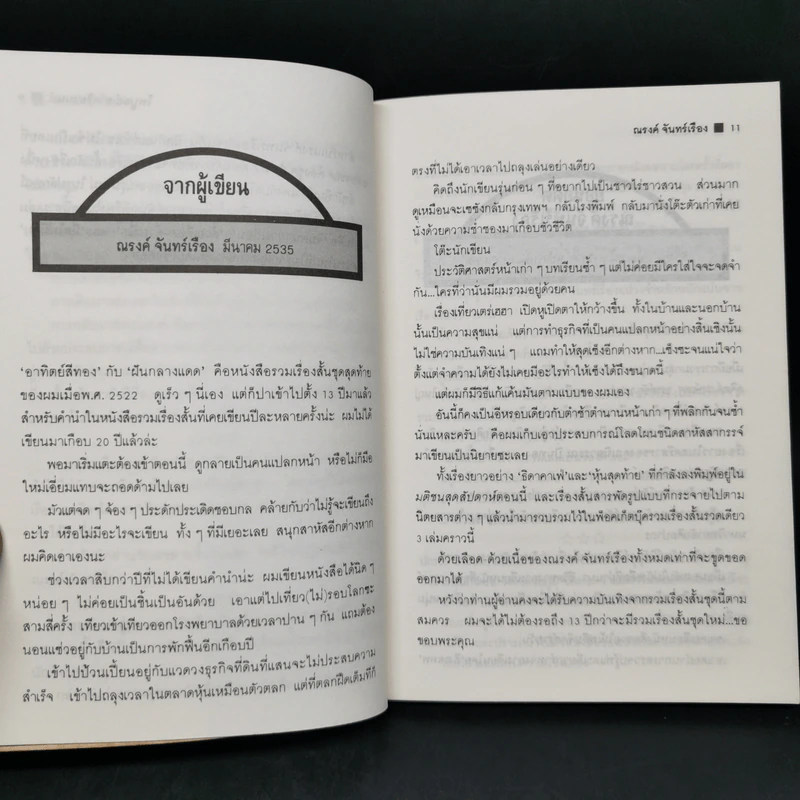 จากผู้เขียน
ณรงค์ จันทร์เรือง มีนาคม 2535
'อาทิตย์สีทอง' กับ 'ฝันกลางแดด' คือหนังสือรวมเรื่องสั้นชุดสุดท้าย
ของผมเมื่อพ.ศ. 2522 ดูเร็ว ๆ นี่เอง แต่ก็ปาเข้าไปตั้ง 13 ปีมาแล้ว
สำหรับคำนำในหนังสือรวมเรื่องสั้นที่เคยเขียนปีละหลายครั้งน่ะ ผมไม่ได้
เขียนมาเกือบ 20 ปีแล้วล่ะ
พอมาเริ่มแตะต้องเข้าตอนนี้ ดูกลายเป็นคนแปลกหน้า หรือไม่ก็มือ
ใหม่เอี่ยมแทบจะถอดด้ามไปเลย
มัวแต่จด ๆ จ้อง ๆ ประดักประเดิดชอบกล คล้ายกับว่าไม่รู้จะเขียนถึง
อะไร หรือไม่มีอะไรจะเขียน ทั้ง ๆ ที่มีเยอะเลย สนุกสาหัสอีกต่างหาก
ผมคิดเอาเองนะ
ช่วงเวลาสิบกว่าปีที่ไม่ได้เขียนคำนำน่ะ ผมเขียนหนังสือได้นิด ๆ
หน่อย ๆ ไม่ค่อยเป็นชิ้นเป็นอันด้วย เอาแต่ไปเที่ยว(ไม่)รอบโลกซะ
สามสี่ครั้ง เทียวเข้าเทียวออกโรงพยาบาลด้วยเวลาปาน ๆ กัน แถมต้อง
นอนแซ่วอยู่กับบ้านเป็นการพักฟื้นอีกเกือบปี
เข้าไปป้วนเปี้ยนอยู่กับแวดวงธุรกิจที่ดินที่แสนจะไม่ประสบความ
สำเร็จ เข้าไปถลุงเวลาในตลาดหุ้นเหมือนตัวตลก แต่ที่ตลกฝืดเต็มทีก็
ณรงค์ จันทร์เรือง ■ 11
ตรงที่ไม่ได้เอาเวลาไปถลุงเล่นอย่างเดียว
คิดถึงนักเขียนรุ่นก่อน ๆ ที่อยากไปเป็นชาวไร่ชาวสวน ส่วนมาก
ดูเหมือนจะเซซังกลับกรุงเทพฯ กลับโรงพิมพ์ กลับมานั่งโต๊ะตัวเก่าที่เคย
นั่งด้วยความช่ำชองมาเกือบชั่วชีวิต
โต๊ะนักเขียน
ประวัติศาสตร์หน้าเก่า ๆ บทเรียนซ้ำ ๆ แต่ไม่ค่อยมีใครใส่ใจจะจดจำ
กัน...ใครที่ว่านั้นมีผมรวมอยู่ด้วยคน
เรื่องเที่ยวเตร่เฮฮา เปิดหูเปิดตาให้กว้างขึ้น ทั้งในบ้านและนอกบ้าน
นั้นเป็นความสุขแน่ แต่การทำธุรกิจที่เป็นคนแปลกหน้าอย่างสิ้นเชิงนั้น
ไม่ใช่ความบันเทิงแน่ ๆ แถมทำให้สุดเซ็งอีกต่างหาก...เซ็งซะจนแน่ใจว่า
ตั้งแต่จำความได้ยังไม่เคยมีอะไรทำให้เซ็งได้ถึงขนาดนี้
แต่ผมก็มีวิธีแก้แค้นมันตามแบบของผมเอง
อันนี้ก็คงเป็นอีหรอบเดียวกับตำซ้ำตำนานหน้าเก่า ๆ ที่พลิกกันจนช้ำ
นั่นแหละครับ คือผมเก็บเอาประสบการณ์โลดโผนชนิดสาหัสสากรรจ์
มาเขียนเป็นนิยายซะเลย
ทั้งเรื่องยาวอย่าง 'ธิดาคาเฟ่' และ 'หุ้นสุดท้าย' ที่กำลังลงพิมพ์อยู่ใน
มติชนสุดสัปดาห์ตอนนี้ และเรื่องสั้นสารพัดรูปแบบที่กระจายไปตาม
นิตยสารต่าง ๆ แล้วนำมารวบรวมไว้ในพ็อคเก็ตบุ๊ครวมเรื่องสั้นรวดเดียว
3 เล่มคราวนี้
ด้วยเลือด ด้วยเนื้อของณรงค์ จันทร์เรืองทั้งหมดเท่าที่จะขูดขอด
ออกมาได้
หวังว่าท่านผู้อ่านคงจะได้รับความบันเทิงจากรวมเรื่องสั้นชุดนี้ตาม
สมควร ผมจะได้ไม่ต้องรอถึง 13 ปีกว่าจะมีรวมเรื่องสั้นชุดใหม่...ขอ
ขอบพระคุณ